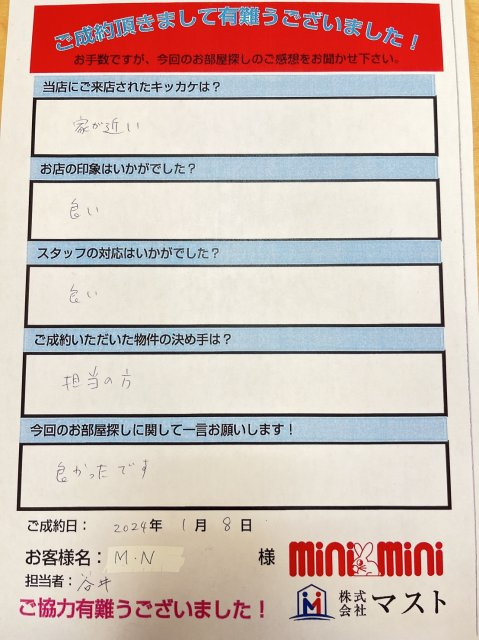 ご成約頂きまして有難うございました！
お手数ですが、今回のお部屋探しのご感想をお聞かせ下さい。
当店にご来店されたキッカケは？
家が近い
お店の印象はいかがでした？
良い
スタッフの対応はいかがでした？
良い
ご成約いただいた物件の決め手は？
担当の方
今回のお部屋探しに関して一言お願いします！
良かったです
ご成約日： 2024年 1月 8日
お客様名： M.N 様
担当者： 谷井
ご協力有難うございました！
mini mini
株式会社 マスト